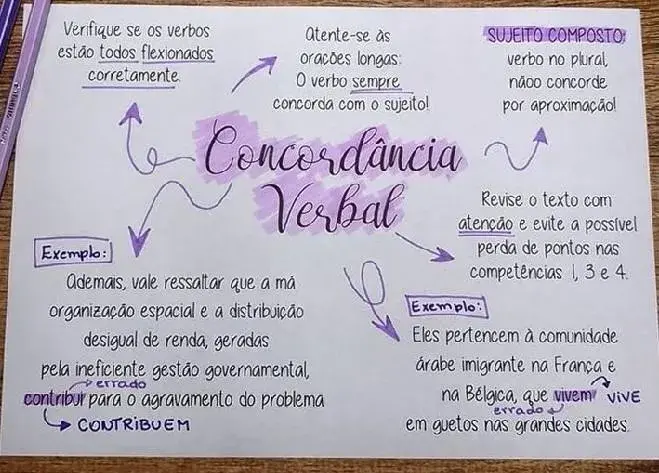 Verifique se os verbos
estão todos flexionados
corretamente.
Atente-se às
orações longas:
O verbo sempre
concorda com o sujeito!
SUJEITO COMPOSTO:
verbo no plural,
nãoo concorde
por aproximação!
Concordância
Verbal
Revise o texto com
atenção e evite a possível
perda de pontos nas
competências 1, 3 e 4.
Exemplo:
Ademais, vale ressaltar que a má
organização espacial e a distribuição
desigual de renda, geradas
pela ineficiente gestão governamental,
errado
contribui para o agravamento do problema
CONTRIBUEM
Exemplo:
Eles pertencem à comunidade
árabe imigrante na França e
na Bélgica, que vivem VIVE
errado
em guetos nas grandes cidades.